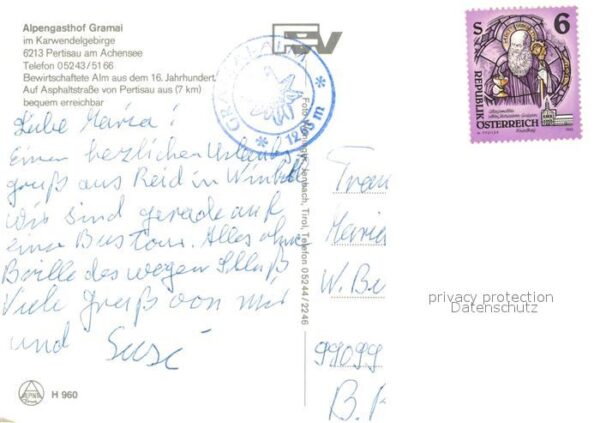 Alpengasthof Gramai
im Karwendelgebirge
6213 Pertisau am Achensee
Telefon 05243/5166
Bewirtschaftete Alm aus dem 16. Jahrhundert.
Auf Asphaltstraße von Pertisau aus (7 km)
bequem erreichbar
GRAMAIALM
* 1263 m *
S 6
REPUBLIK
ÖSTERREICH
Liebe Maria!
Einen herzlichen Urlaubs
gruß aus Reid in Winkel
wir sind gerade auf
einer Bustour. Alles ohne
Brille deswegen Schluß
Viele Gruß von mir
und Susi
Jenbach, Tirol, Telefon 05244/2246
Frau
Maria
W. Be
99099
privacy protection
Datenschutz
ALPINA
H 960